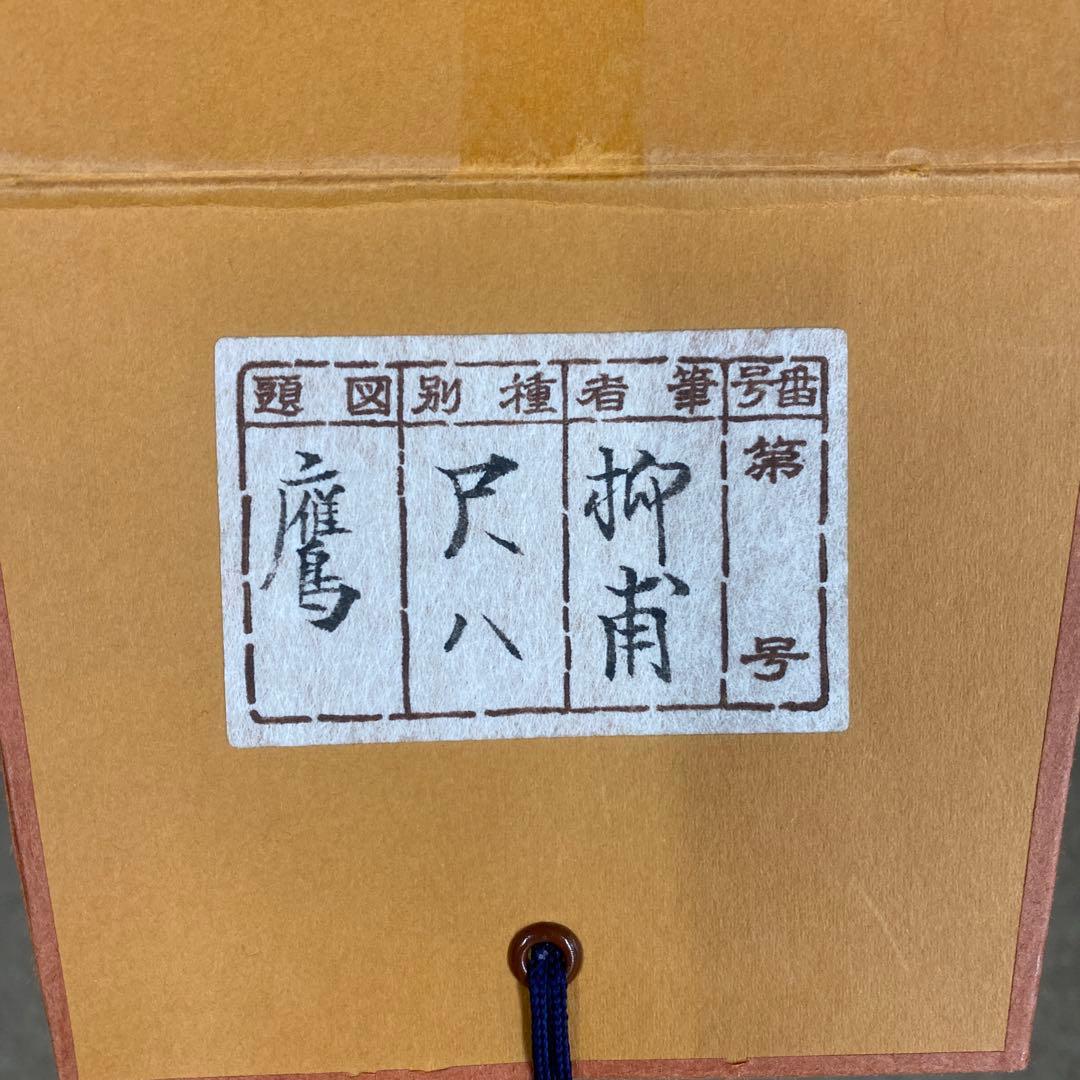 番号
第 号
筆者
抑甫
種別
尺八
図題
鷹